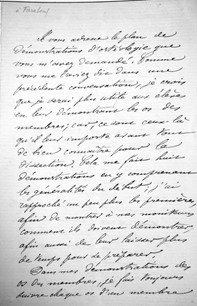 Je vous adresse le plan de
démonstrations d'ostéologie que
vous m'avez demandé. Comme
vous me l'aviez dit dans une
précédente conversation, je crois
que je serai plus utile aux élèves
en leur démontrant les os des
membres; car ce sont ceux là
qu'il leur importe avant tout
de bien connaître pour la
dissection. Cela me fait huit
démonstrations en y comprenant
les généralités du début; j'ai
rapproché un peu plus les premières
afin de montrer à mes moniteurs
comment ils doivent démontrer,
afin aussi de leur laisser plus
de temps pour se préparer.
Dans mes démonstrations des
os des membres, je fais toujours
suivre chaque os d'un membre